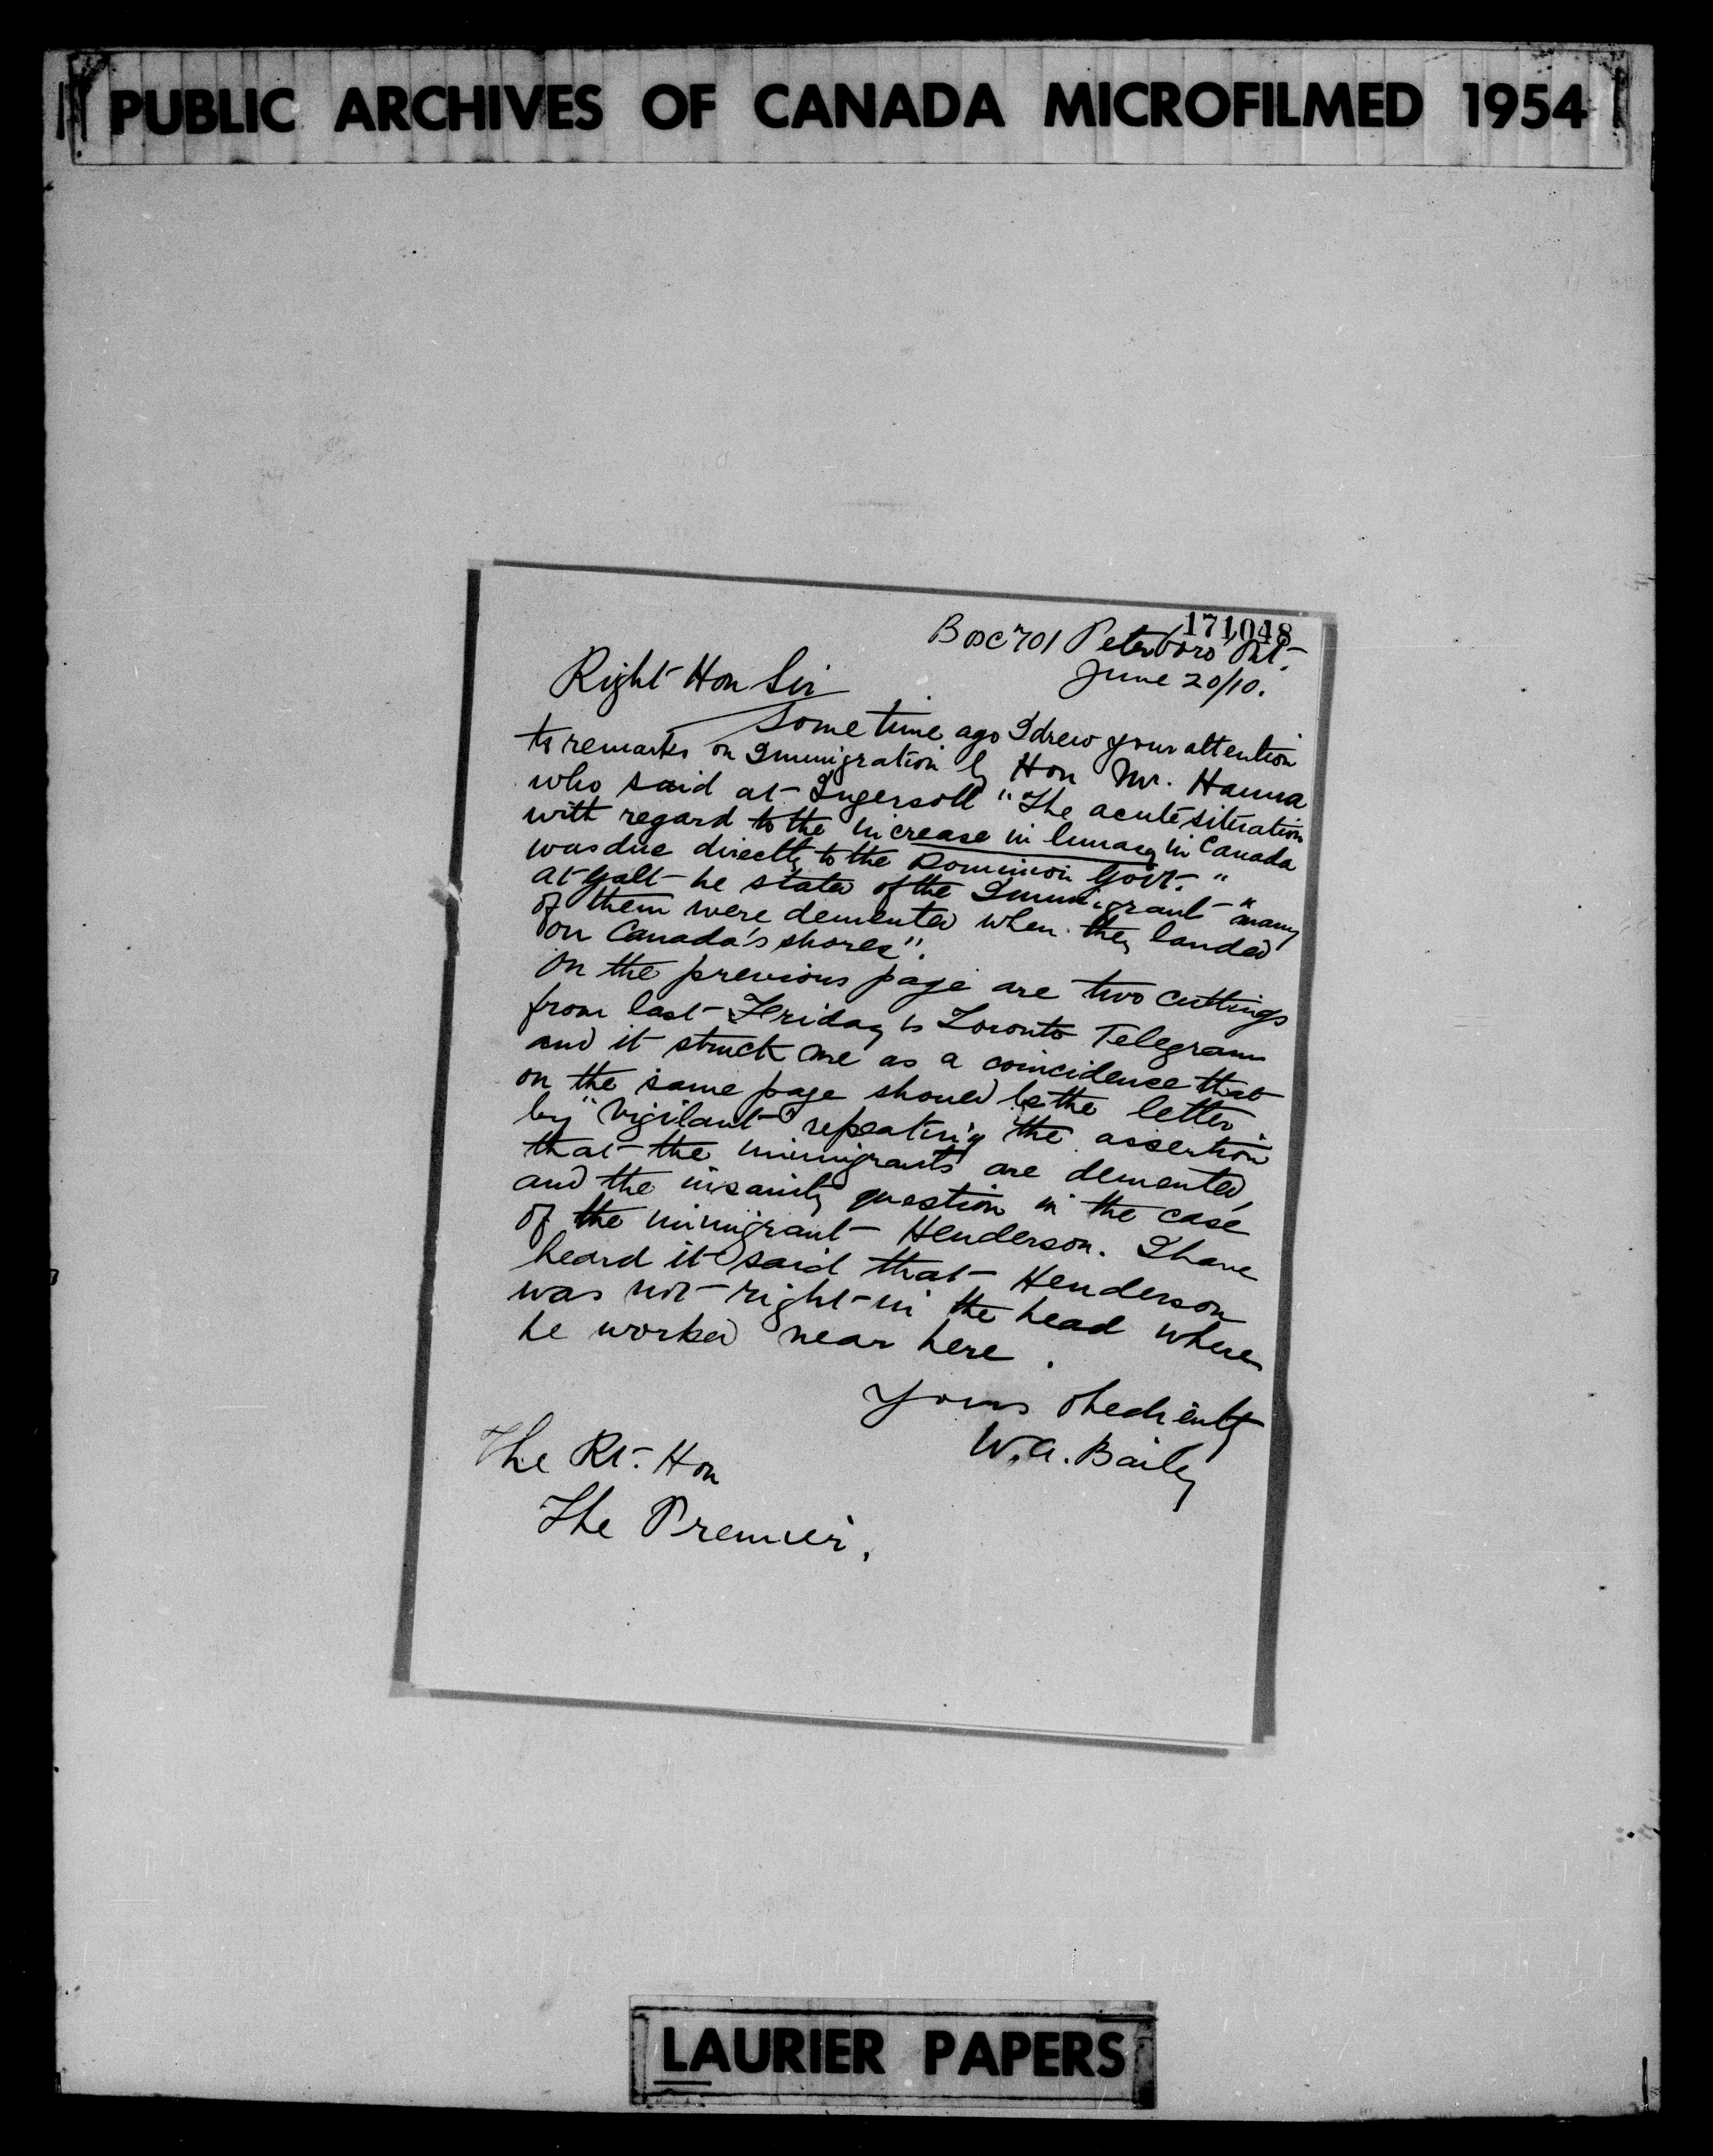 PUBLIC ARCHIVES OF CANADA MICROFILMED 1954
171048
Box 701 Peterboro Ont.
June 20/10.
Right Hon Sir
Some time ago I drew your attention
to remarks on Immigration by Hon Mr. Hanna
who said at Ingersoll "The acute situation
with regard to the increase in lunacy in Canada
was due directly to the Dominion Govt."
At Galt he stated of the Immigrant "many
of them were demented when they landed
on Canada's shores".
On the previous page are two cuttings
from last Friday's Toronto Telegram
and it struck me as a coincidence that
on the same page should be the letter
by "Vigilant" repeating the assertion
that the immigrants are demented,
and the insanity question in the case
of the immigrant Henderson. I have
heard it said that Henderson
was not right in the head where
he worked near here.
Yours obediently
W.A. Bailey
The Rt. Hon
The Premier.
LAURIER PAPERS